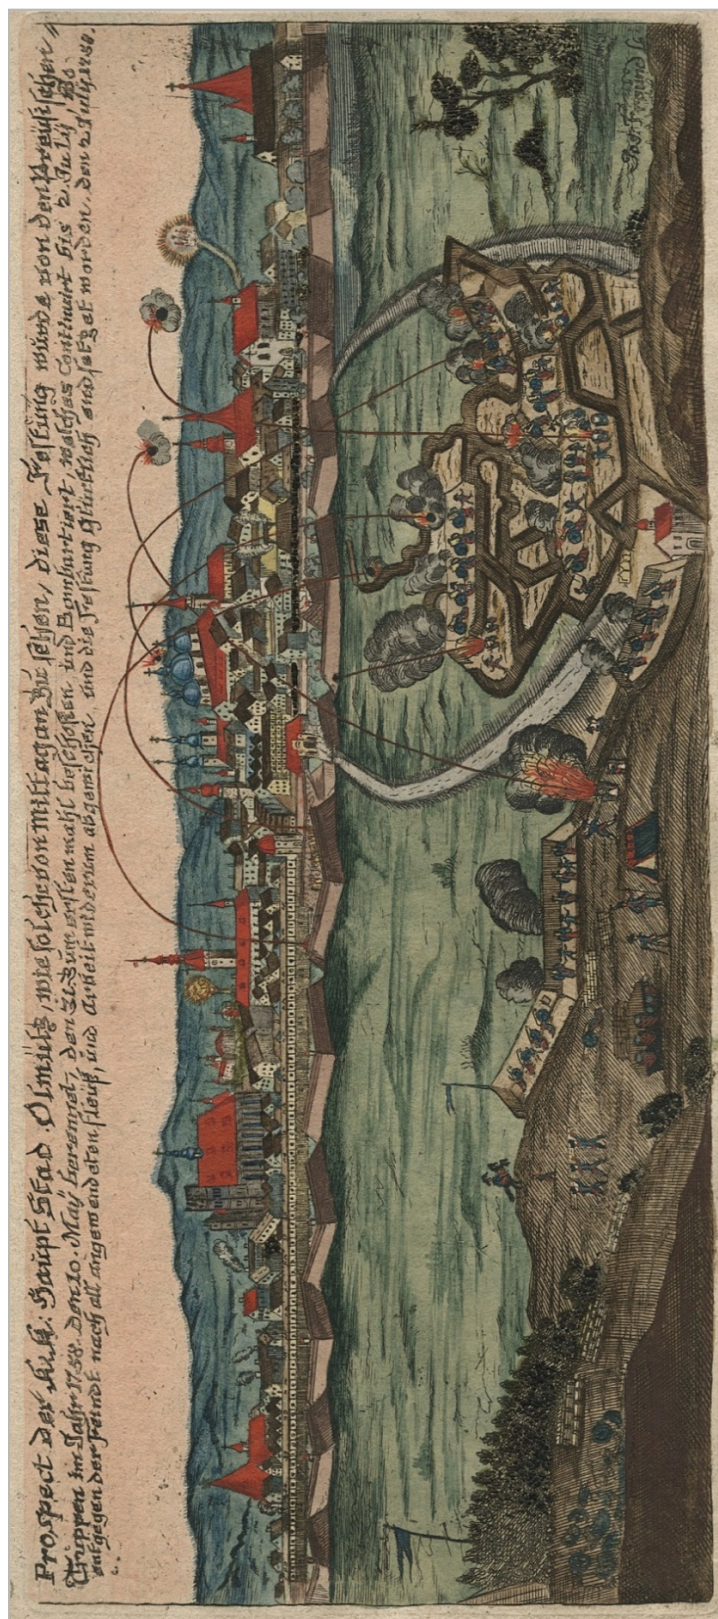 Prospect der Kuk: Haupt Stad Olmütz, wie solche von Mittagan zu sehen, diese Festung wurde von den Preüsischen
Trüppen im Jahr 1758. Den 10. Maÿ berennet, Den 31. zum ersten mahl beschossen und Bombartiert, welches Continuirt bis 2. Julÿ Do
entgegen der Feinde nach all angewendeten fleüß, und Arbeit widerum abgewichen, und die Festung glücklich endsetzet worden, den 2 July 1758.